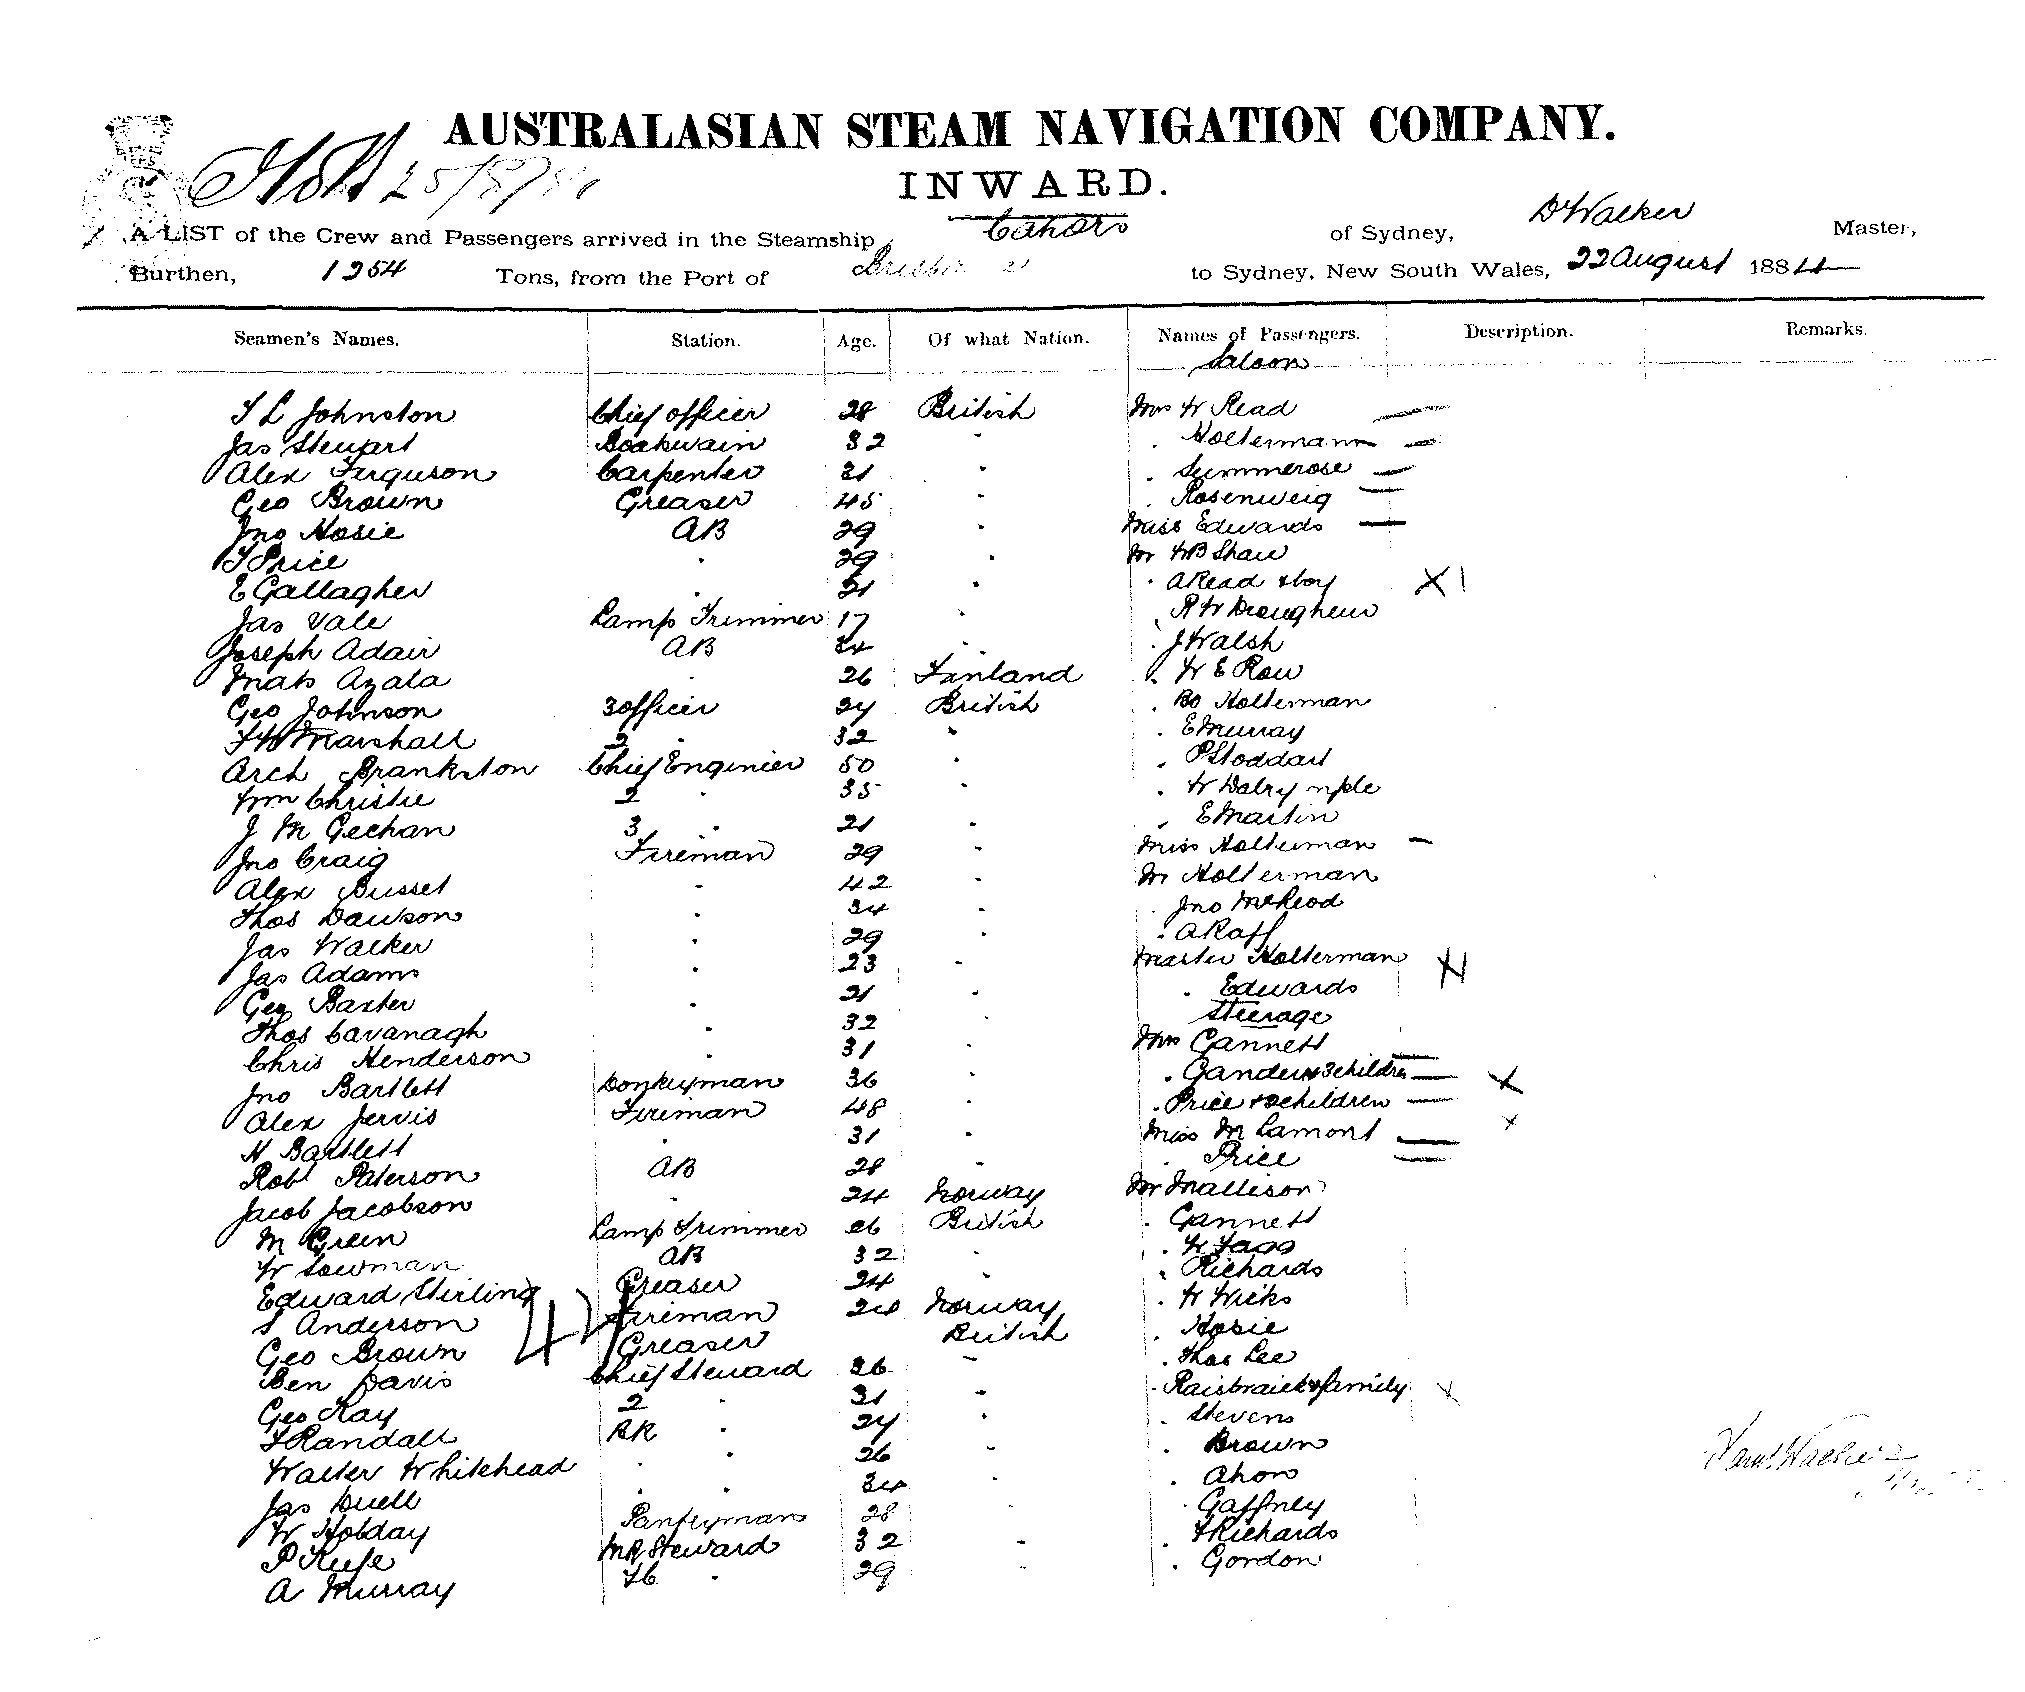 AUSTRALASIAN STEAM NAVIGATION COMPANY.
INWARD.
A LIST of the Crew and Passengers arrived in the Steamship Cahors of Sydney, D Walker Master,
Burthen, 1254 Tons, from the Port of Brisbane to Sydney, New South Wales, 22 August 1884
Seamen's Names. Station. Age. Of what Nation. Names of Passengers. Description. Remarks.
Saloon
Johnston Chief officer 28 British Mrs W Read
Jas Stewart Boatswain 32 " " Holtermann
Alex Ferguson Carpenter 31 " " Summerose
Geo Brown Greaser 45 " " Rosenweig
Jno Hosie AB 29 " Miss Edwards
Price " 29 " Mr WB Shaw
E Gallagher " 21 " " A Read & boy
Jas Vale Lamp Trimmer 17 " " R W
Joseph Adair AB 24 " " J Walsh
Mats Azala " 26 Finland " W E Row
Geo Johnson 3 officer 24 British " Holterman
Marshall 2 " 32 " " E Murray
Arch Brankston Chief Enginier 50 " " P Stoddart
Wm Christie 2 " 35 " " W Dalrymple
J M Gechan 3 " 21 " " E Martin
Jno Craig Fireman 29 " Miss Holterman
Alex Bussel " 42 " Mr Holterman
Thos Dawson " 34 " " Jno McLeod
Jas Walker " 29 " " A Raff
Jas Adams " 23 " Master Holterman
Geo Baxter " 21 " " Edwards
Thos Cavanagh " 32 " Steerage
Chris Henderson " 31 " Mrs Gannett
Jno Bartlett Donkeyman 36 " " Gander & 3 children
Alex Jervis Fireman 48 " " Price & children
H Bartlett " 31 " Miss M Lamont
Robt Paterson AB 28 " " Price
Jacob Jacobson " 24 Norway Mr Mallison
M Green Lamp Trimmer 26 British " Gannett
W Lowman AB 32 " " W Fagg
Edward Stirling Greaser 24 " " Richards
S Anderson Fireman 24 Norway " W Wicks
Geo Brown Greaser British " Hosie
Ben Davis Chief Steward 36 " " Thos Lee
Geo Kay 2 " 31 " " & family
Randall BK " 24 " " Stevens
Walter Whitehead " " 26 " " Brown
Jas Duell " " 34 " " Ahon
W Hobday Pantryman 28 " Gaffney
P Keefe Steward 32 " " Richards
A Murray " 29 " " Gordon
44